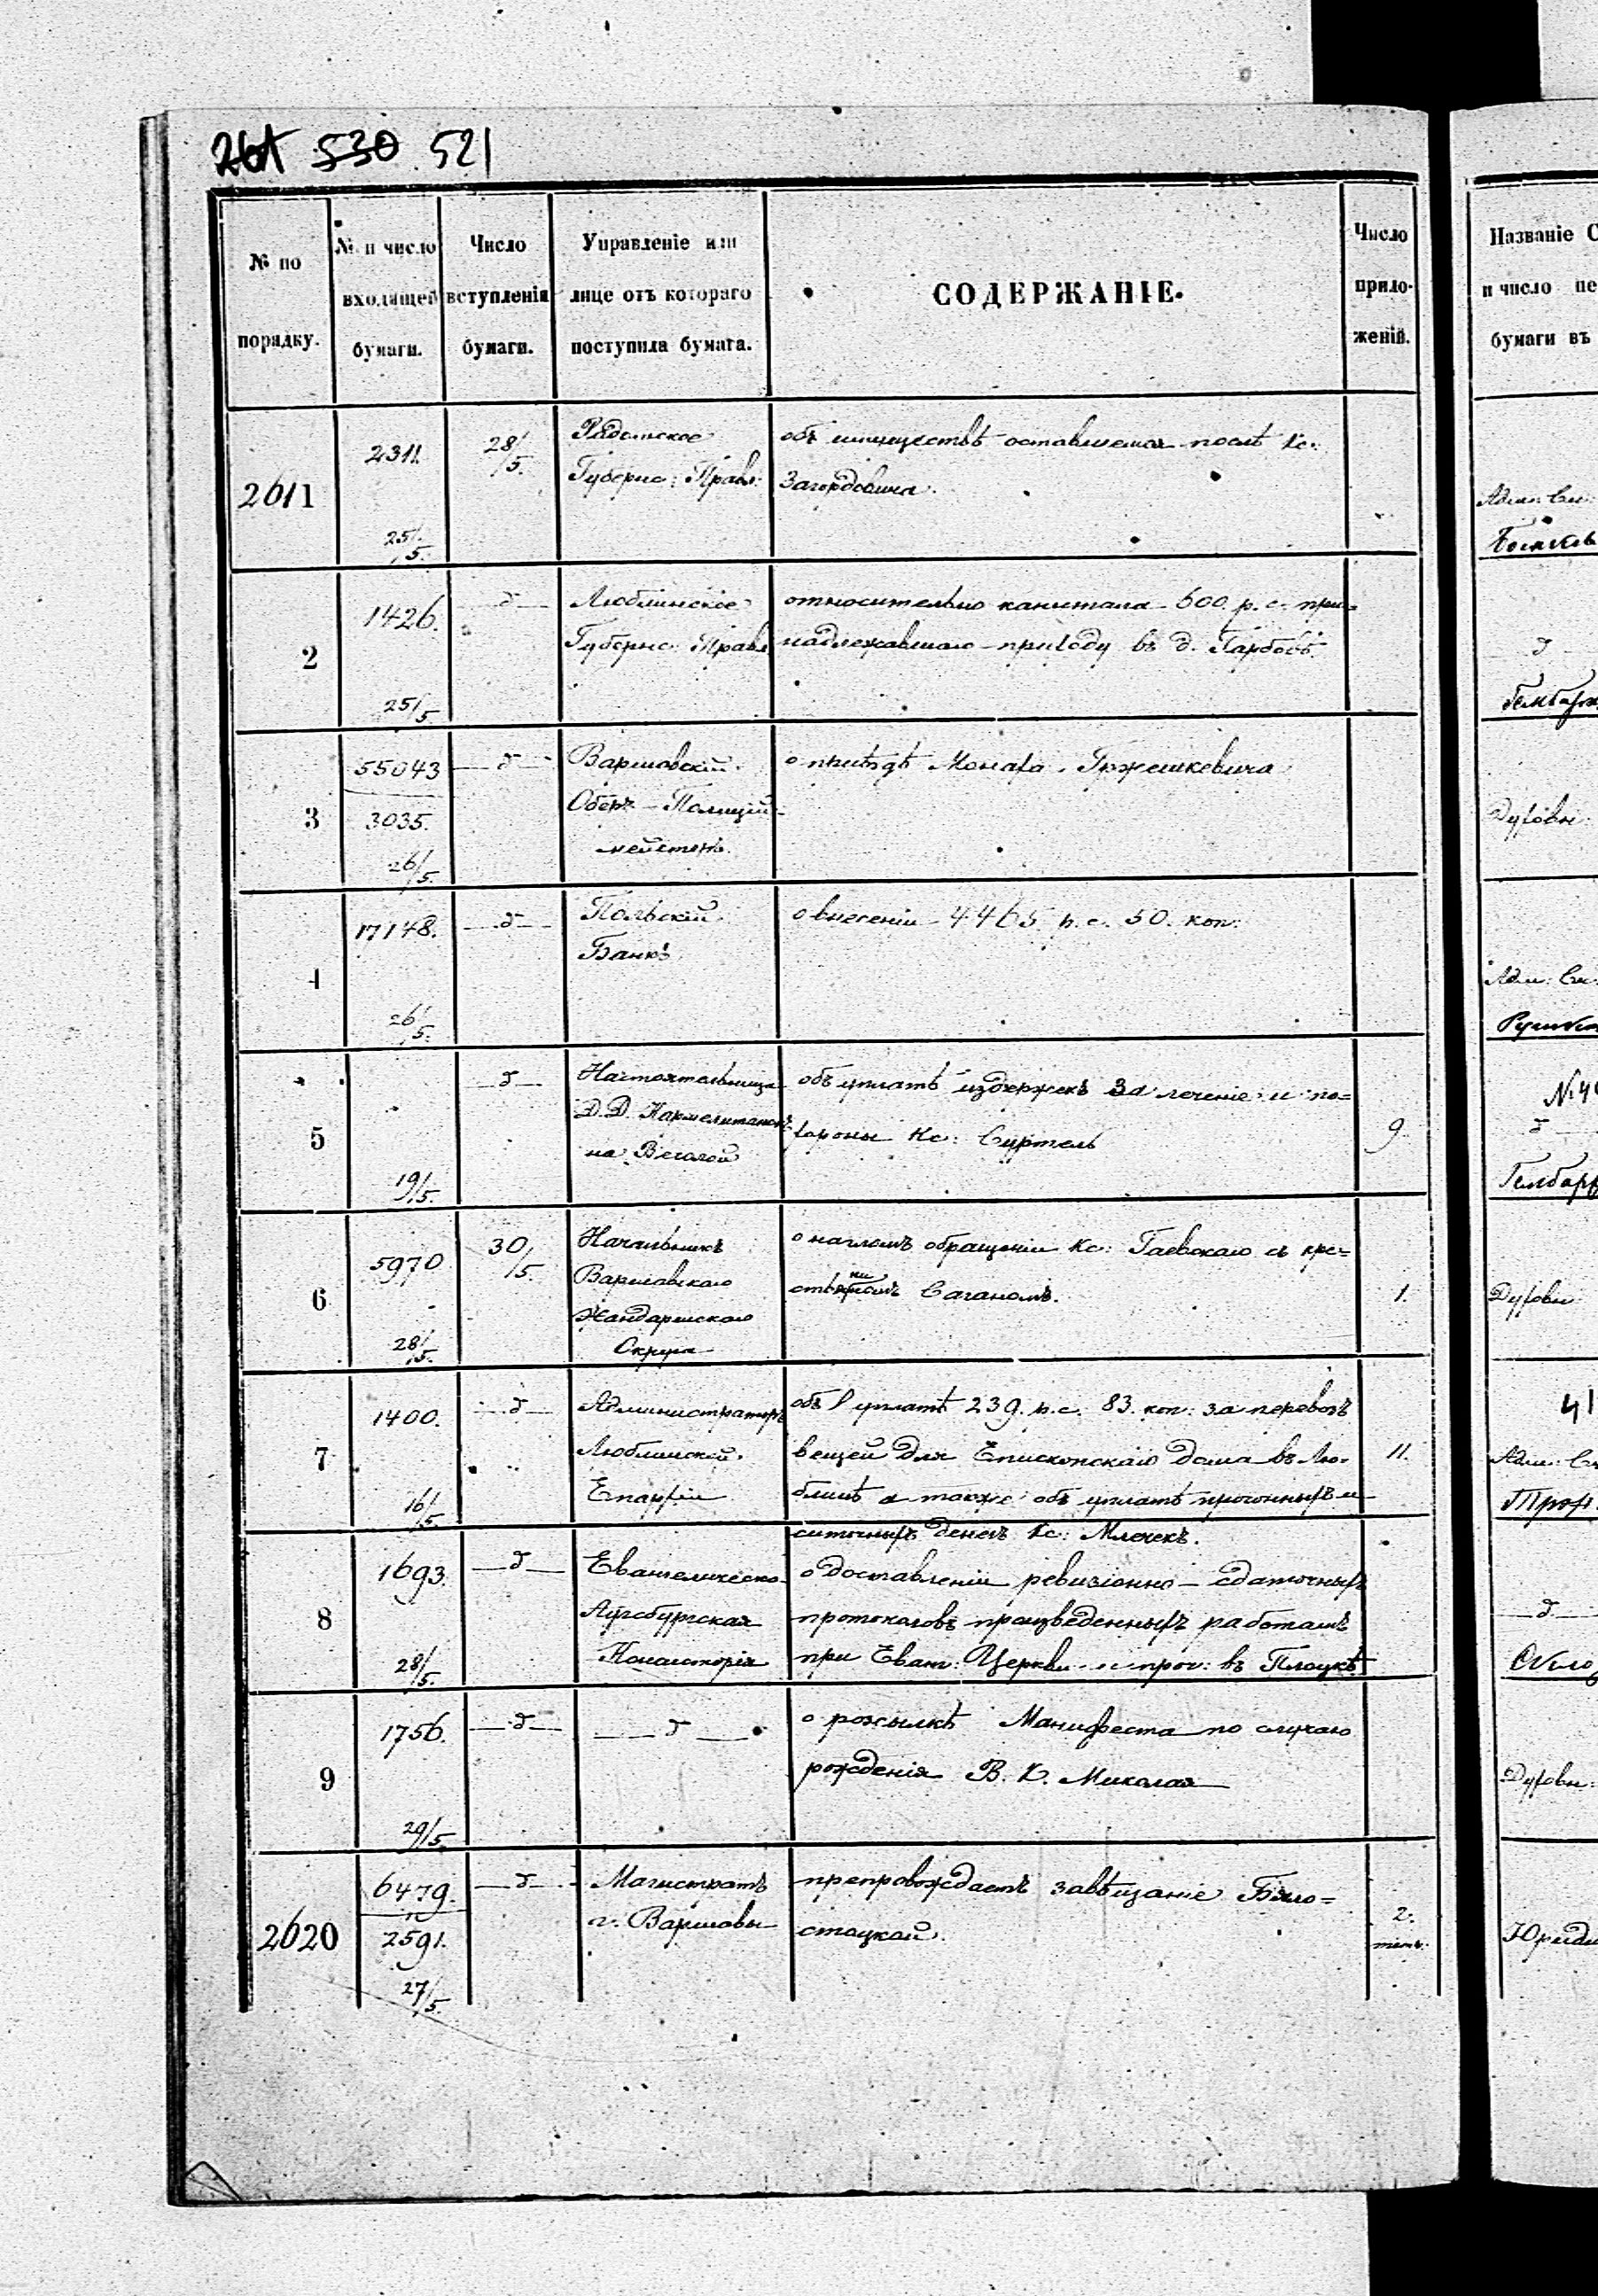 261 530 521
№ по порядку.
№ и число входящей бумаги.
Число вступленія бумаги.
Управленіе или лице отъ котораго поступила бумага.
СОДЕРЖАНІЕ.
Число приложеній.
Названіе С
и число пе
бумаги въ
2611
2311.
25/5.
28/5.
Радомское
Губернс: Правл:
объ имуществѣ оставшемся послѣ Кс:
Адми: Сн:
2
1426.
25/5
д
Люблинское
Губернс: Правл
относительно капитала 600. р. с. при=
надлежавшаго приходу въ д. Гарбовѣ.
д
3
55043
3035.
26/5.
д
Варшавскій
Оберъ-Полицій-
мейстеръ.
о пріѣздѣ Монаха Гржешкевича
Духовн:
4
17148.
26/5.
д
Польскій
Банкъ
о внесеніи 4465. р. с. 50. коп:
Адм: Сн:
5
19/5.
д
Настоятельница
Д. Д. Кармелитанокъ
на Веселой
объ уплатѣ издержекъ за леченіе и по=
хороны Кс: Суртель
9
№ 4
д
6
5970
28/5.
30/5.
Начальникъ
Варшавскаго
Жандармскаго
Округа
о нагломъ обращеніи Кс: Гаевскаго съ кре=
Саганомъ.
1.
Духовн
7
1400.
16/5.
д
Администраторъ
Люблинскій
Епархіи
объ уплатѣ 239. р. с. 83. коп: за перевозъ
вещей для Епископскаго дома въ Лю-
блинѣ а также объ уплатѣ прогонныхъ и
суточныхъ денегъ Кс: Млечекъ.
11.
41
Адм: Сн
8
1693.
28/5.
д
Евангелическо-
Аугсбургская
Консисторія
о доставленіи ревизіонно-сдаточныхъ
протоколовъ произведенныхъ работамъ
при Еванг: Церкви и проч: въ Плоцкѣ
д
9
1756.
29/5.
д
д
о розсылкѣ Манифеста по случаю
рожденія В. К. Николая
Духовн:
2620
6479.
2591.
27/5.
д
Магистратъ
г. Варшавы
препровождаетъ завѣщаніе Бяло=
стоцкой.
2.
Юриди